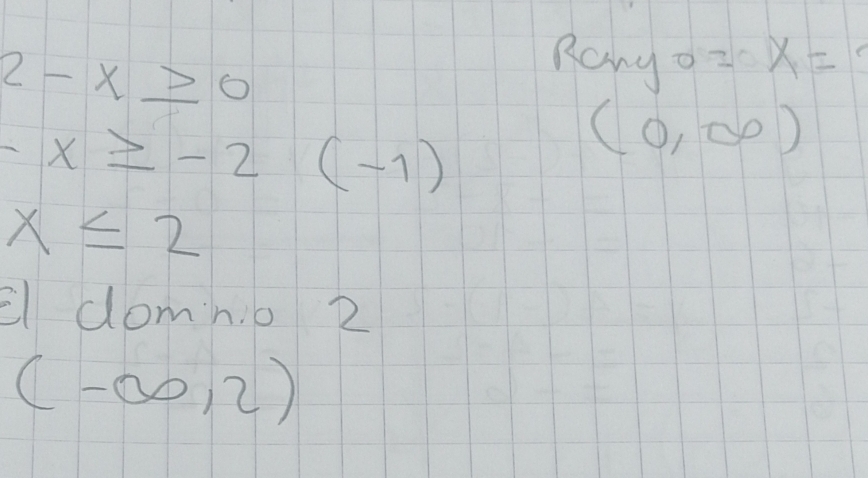 2 - x ≥ 0
- x ≥ - 2 (-1)
x ≤ 2
El dominio 2
(-∞, 2)
Rango = x =
(0, ∞)